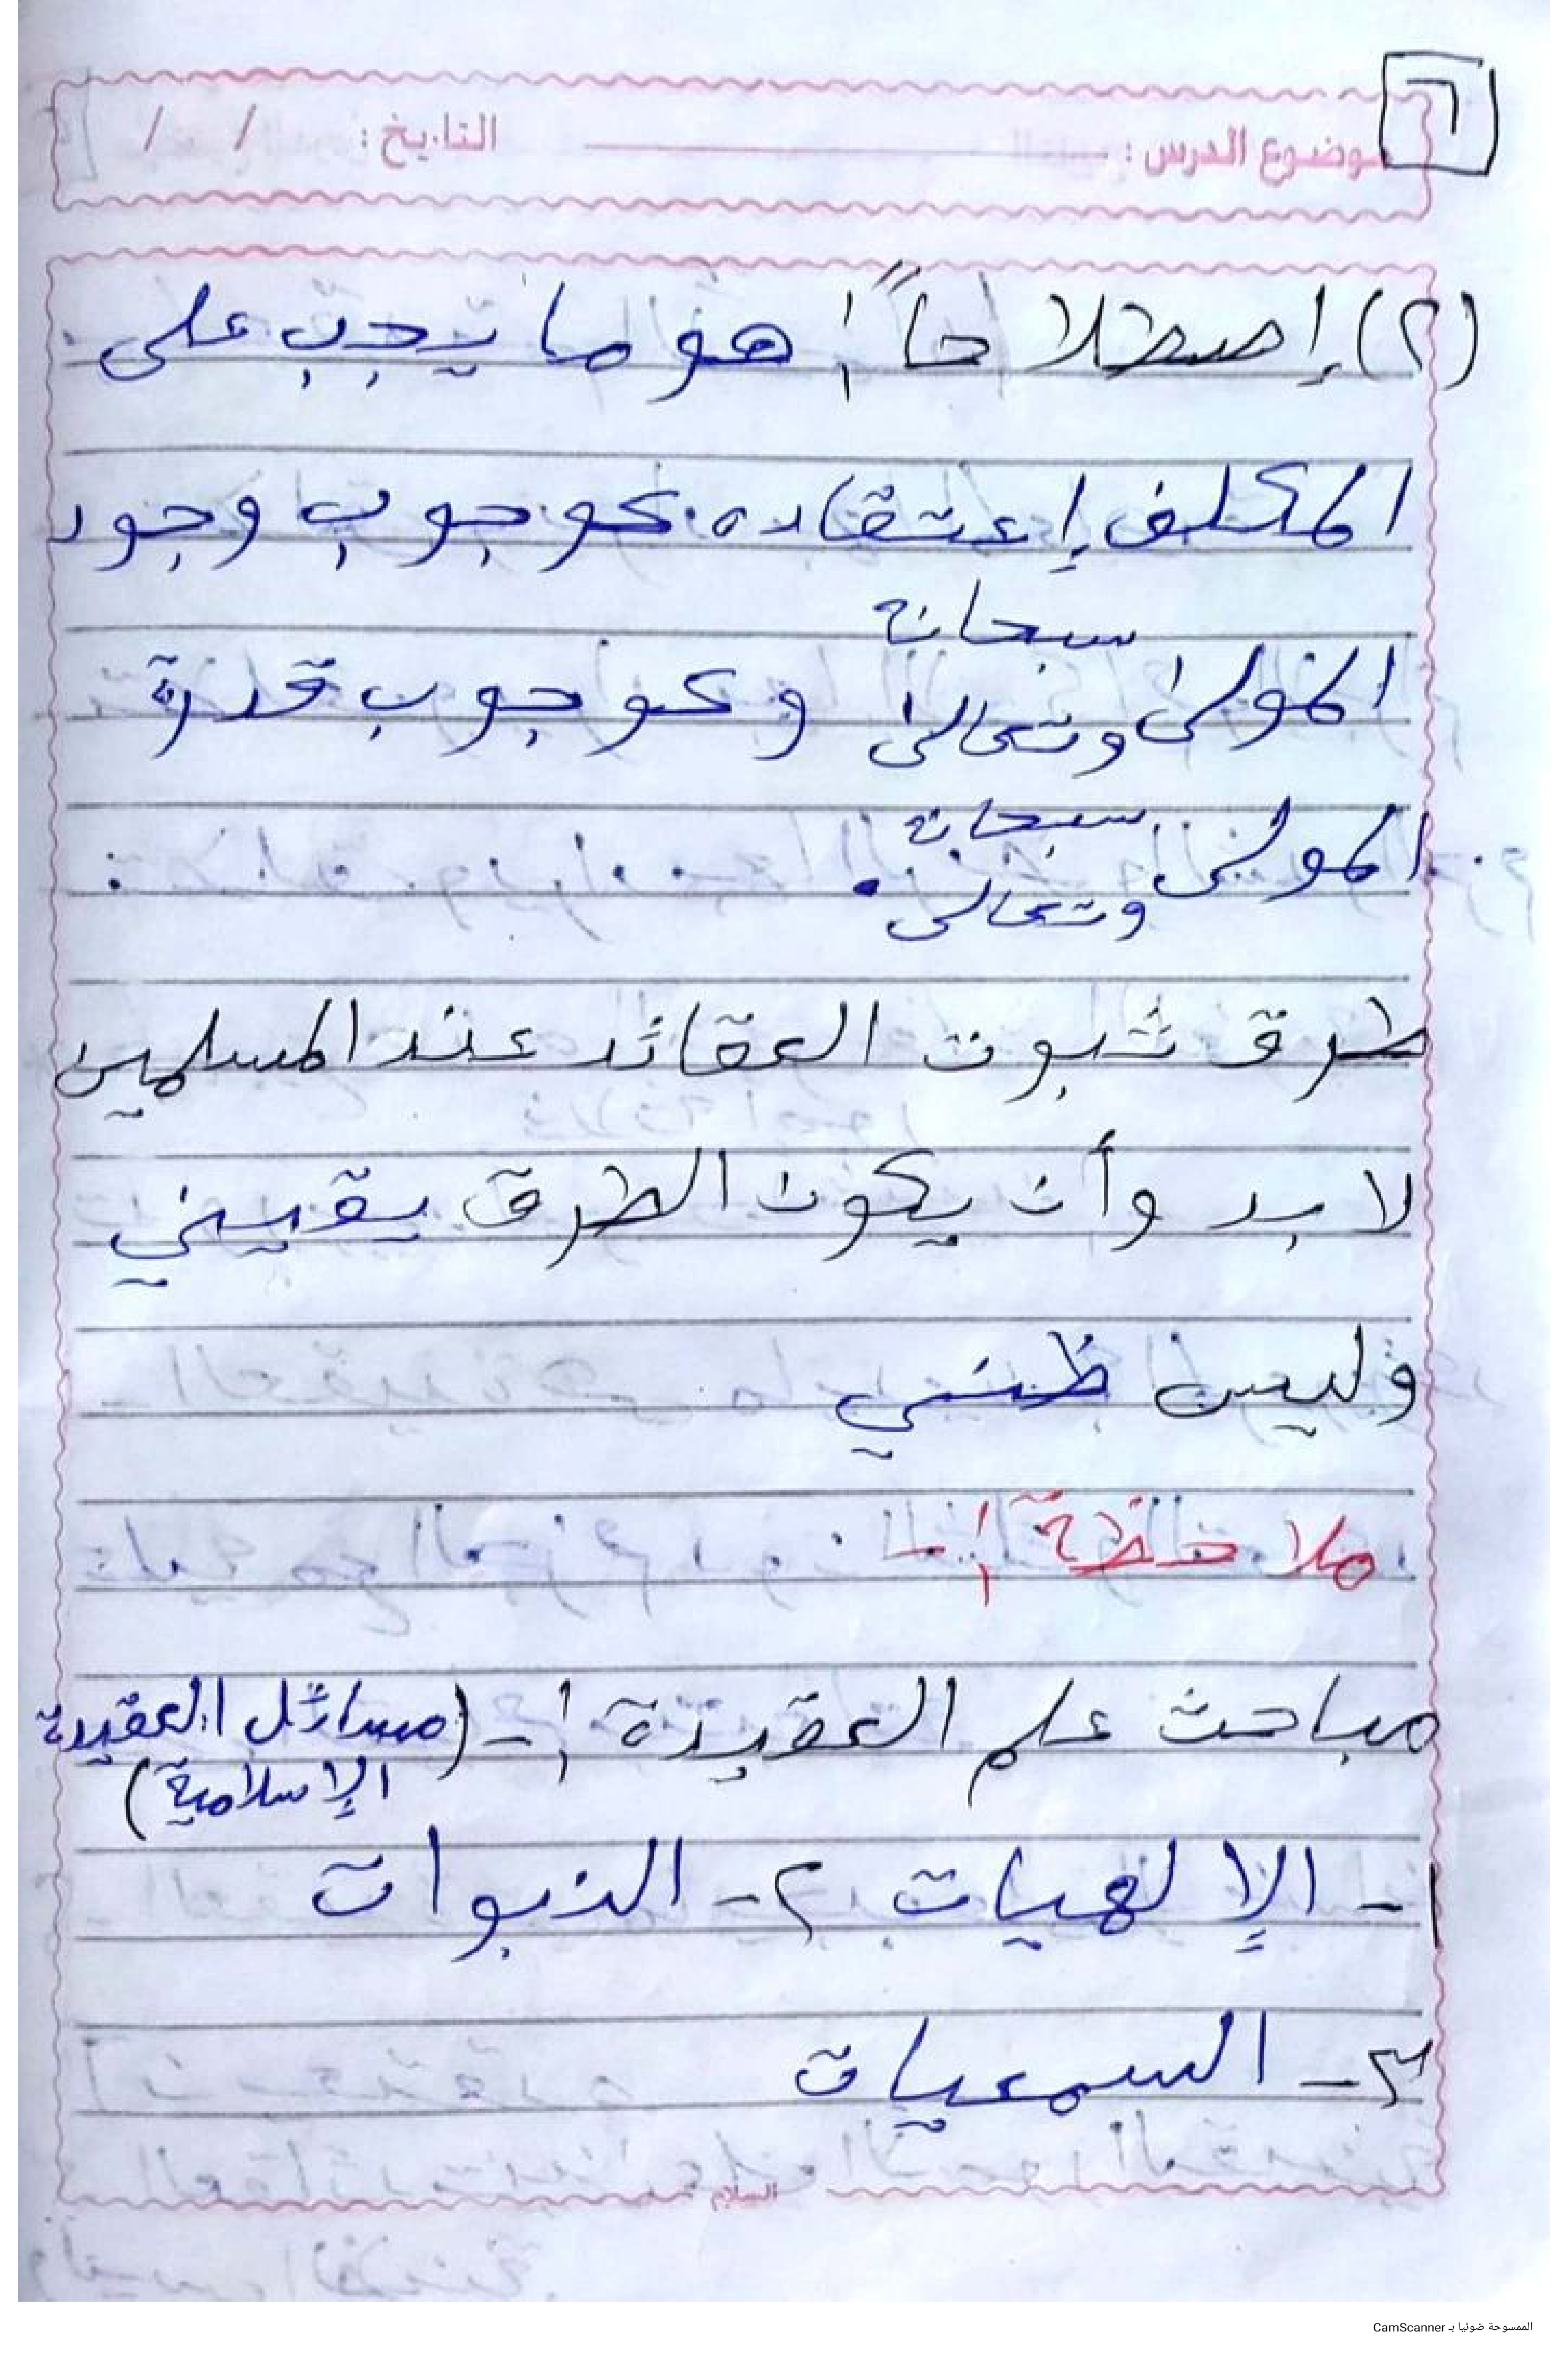 ٦
موضوع الدرس : التاريخ : / /
(٢) إصطلاحاً : هو ما يجب على
المكلف إعتقاده كوجوب وجود
المولى سبحانه وتعالى وكوجوب قدرة
المولى سبحانه وتعالى .
طرق ثبوت العقائد عند المسلمين
لا بد وأن يكون الطرق يقيني
وليس ظني
ملاحظة :-
مباحث علم العقيدة :- (مسائل العقيدة
الإسلامية)
١- الإلهيات ٢- النبوات
٣- السمعيات
السلام
الممسوحة ضوئيا بـ CamScanner